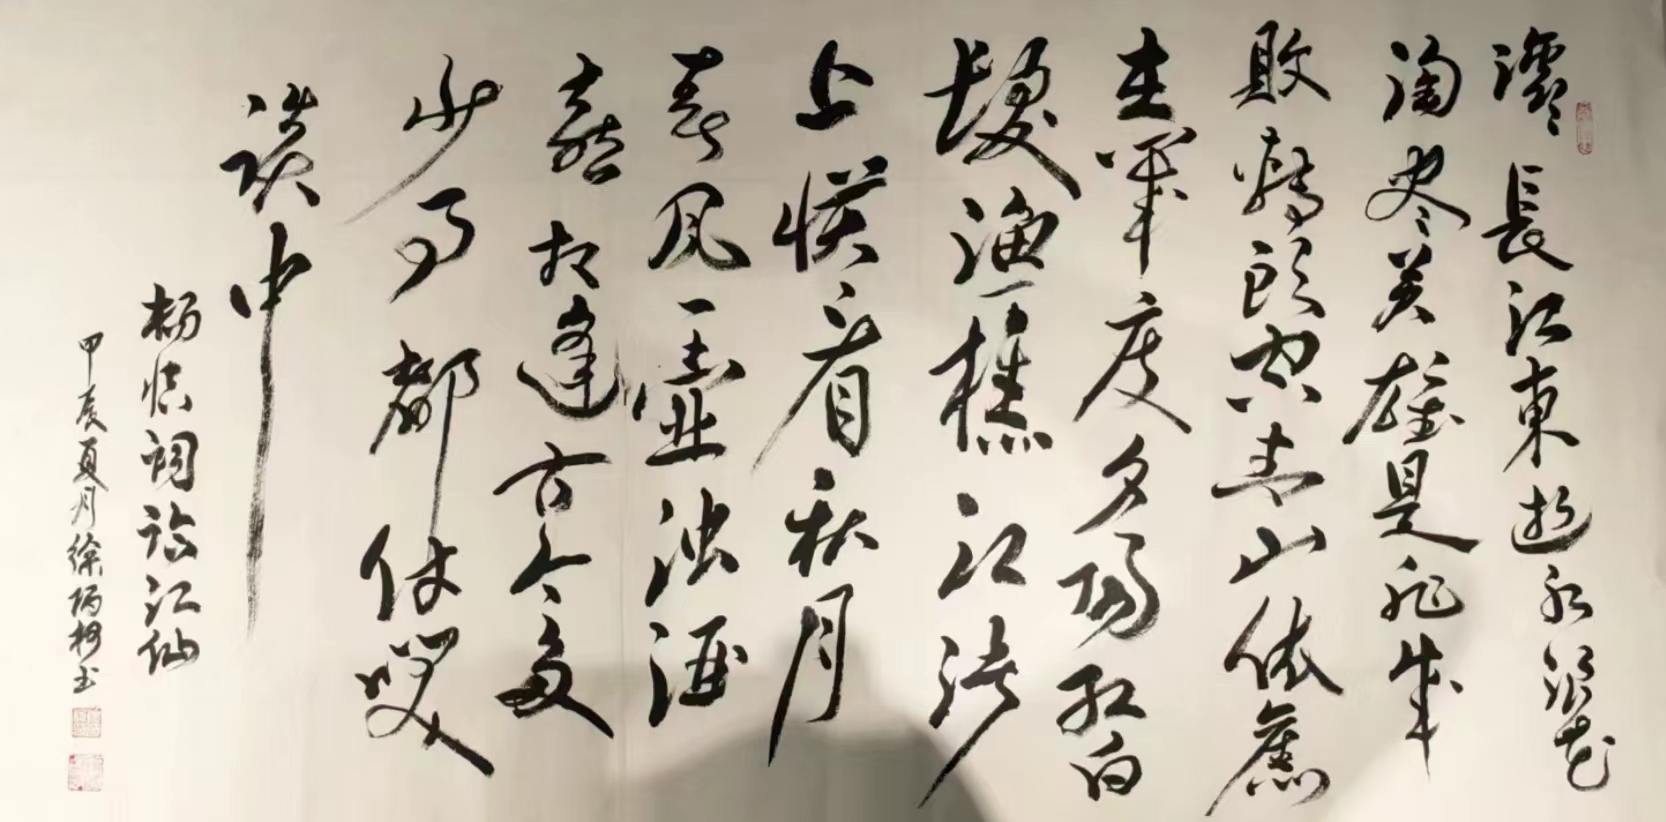 滚滚長江東逝水浪花
淘尽英雄是非成
敗轉頭空青山依舊
在幾度夕陽紅白
髮漁樵江渚
上惯看秋月
春风一壺浊酒
喜相逢古今多
少事都付笑
談中
杨慎词临江仙
甲辰夏月徐炳书